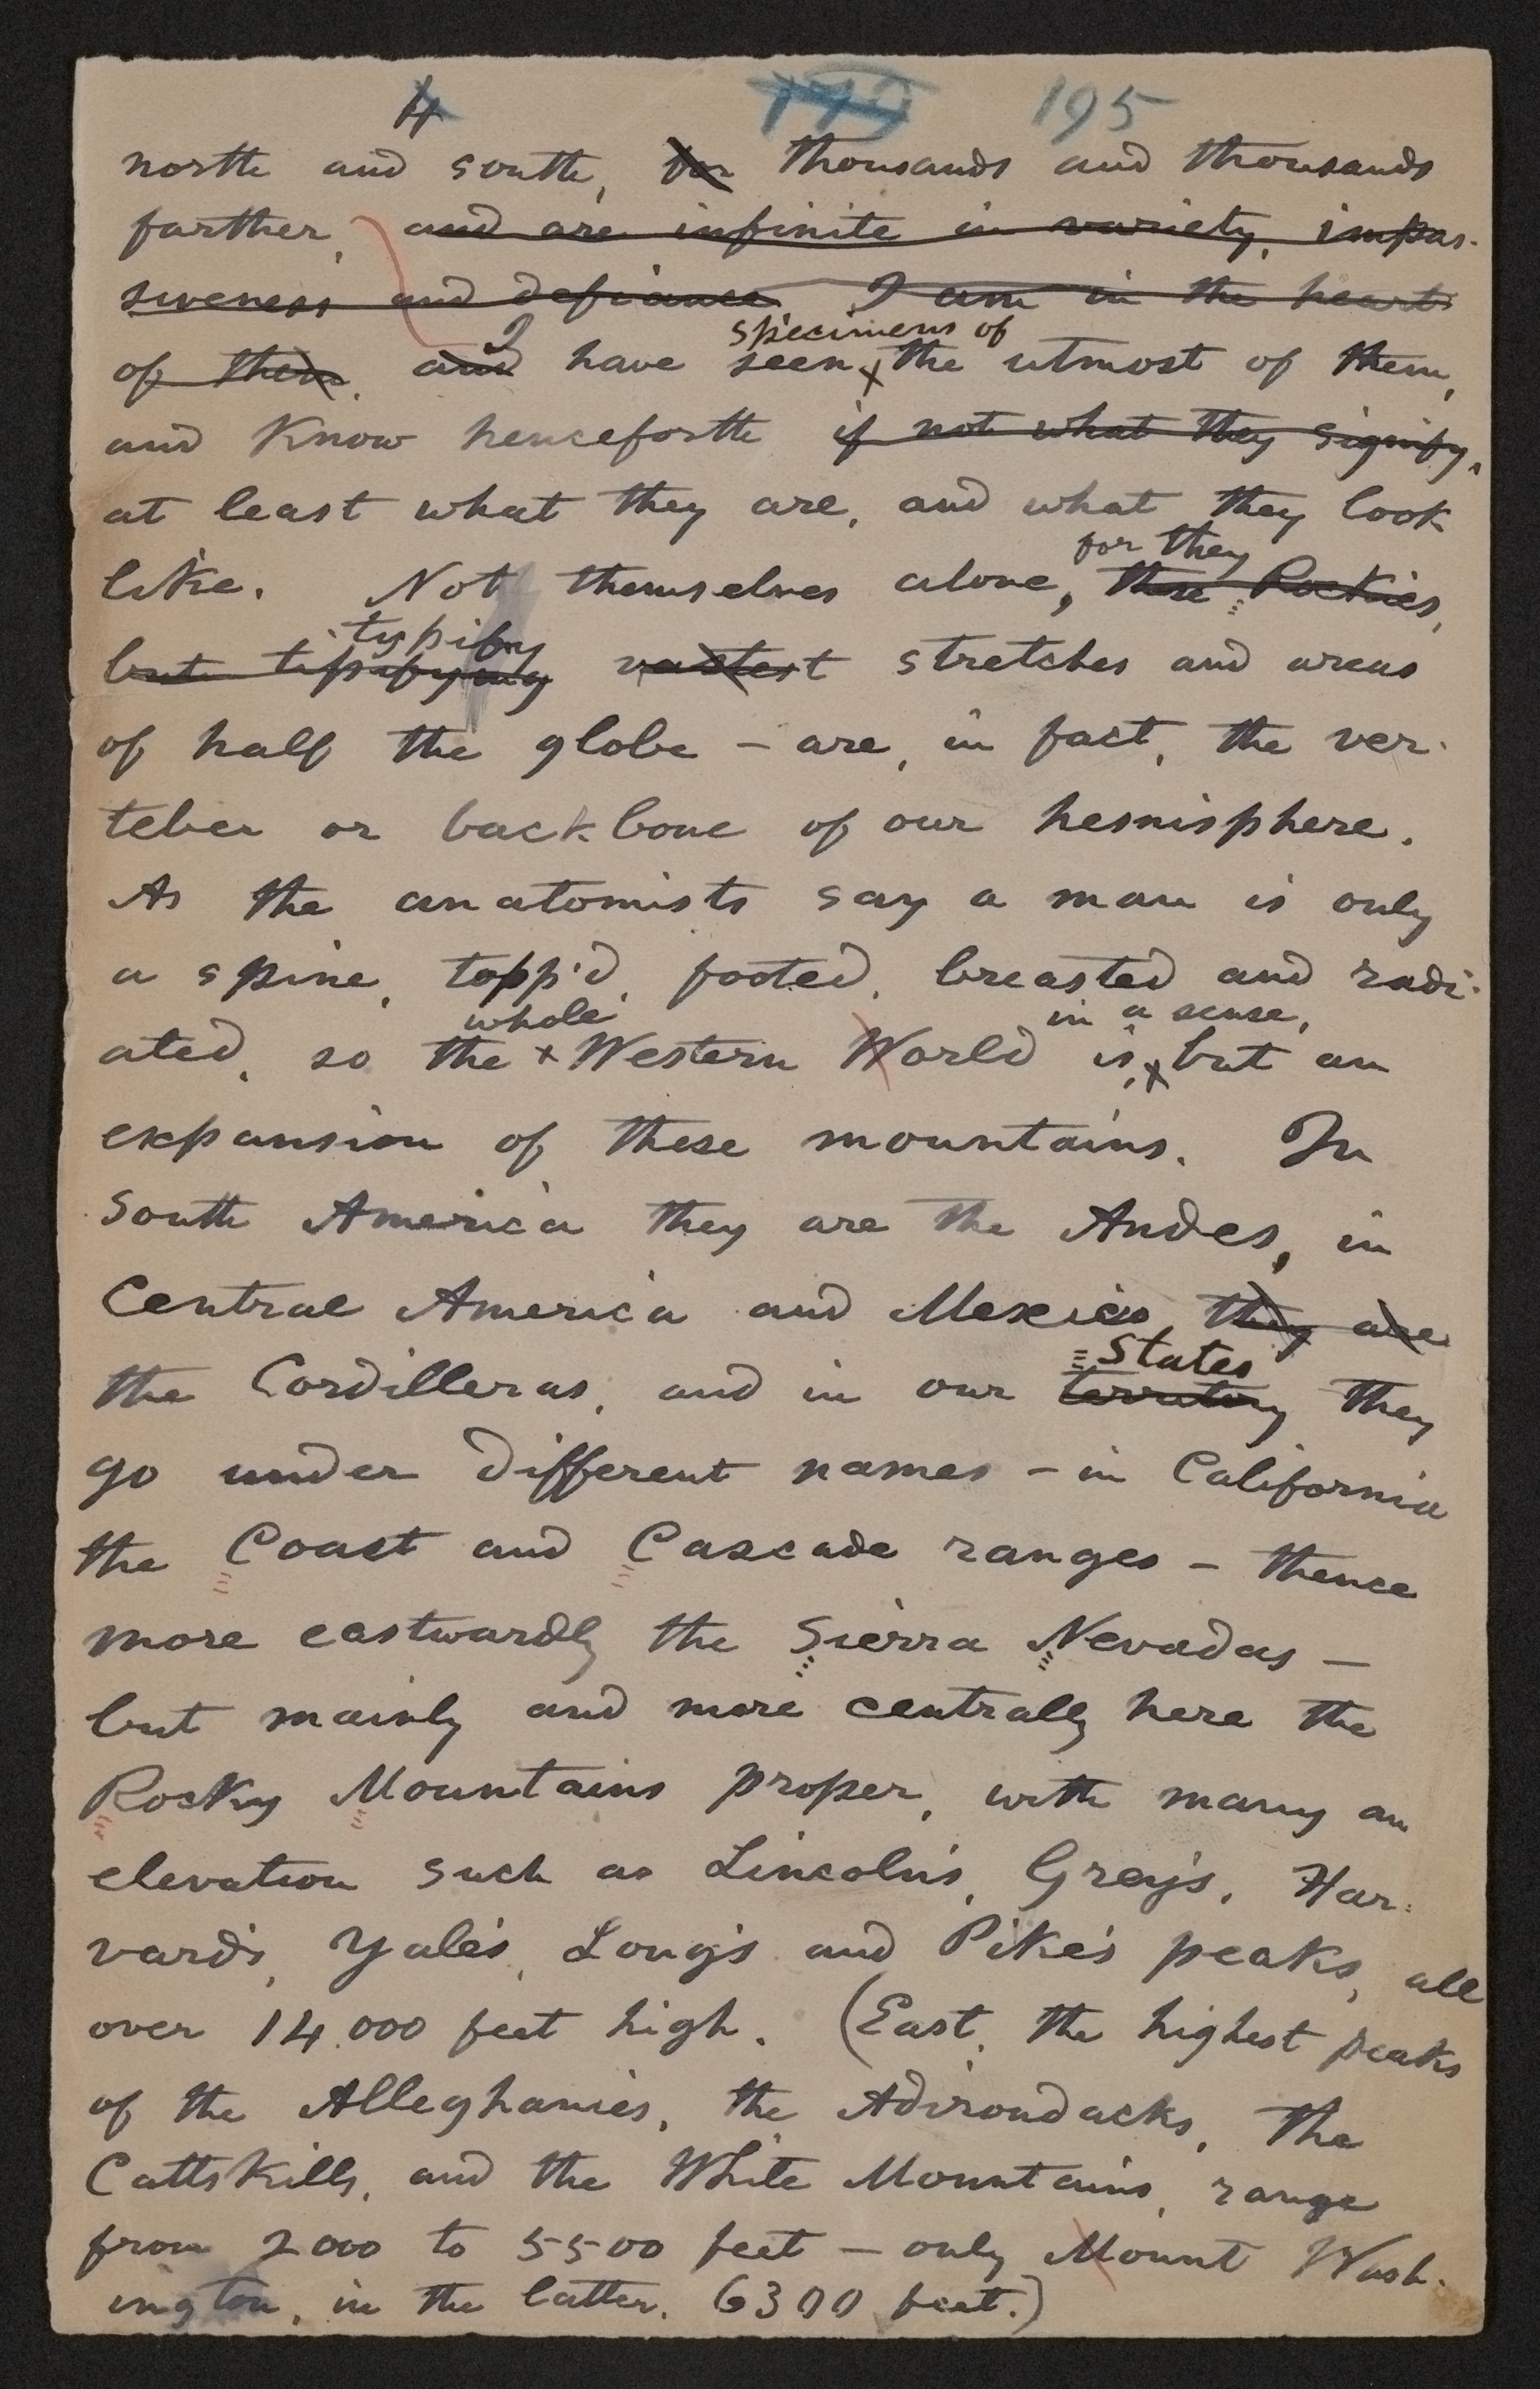 4 179 195
north and south, for thousands and thousands
farther, and are infinite in variety, impas-
siveness and defiance I am in the heart
specimens of
of them, and I have seen x the utmost of them,
and know henceforth if not what they signify,
at least what they are, and what they look
for they
like. Not themselves alone, these Rockies,
typify
but tipifying vastest stretches and areas
of half the globe – are, in fact, the ver-
teber or back bone of our hemisphere.
As the anatomists say a man is only
a spine, topp'd, footed, breasted and radi-
whole in a sense,
ated, so the x Western World is, x but an
expansion of these mountains. In
South America they are the Andes, in
Central America and Mexico they are
States
the Cordilleras, and in our territory they
go under different names – in California
the Coast and Cascade ranges – thence
more eastwardly the Sierra Nevadas –
but mainly and more centrally here the
Rocky Mountains proper, with many an
elevation such as Lincoln's, Grey's, Har-
vard's, Yale's, Long's and Pike's peaks, all
over 14,000 feet high. (East, the highest peaks
of the Alleghanies, the Adirondacks, the
Cattskills, and the White Mountains, range
from 2000 to 5500 feet – only Mount Wash-
ington, in the latter, 6300 feet.)